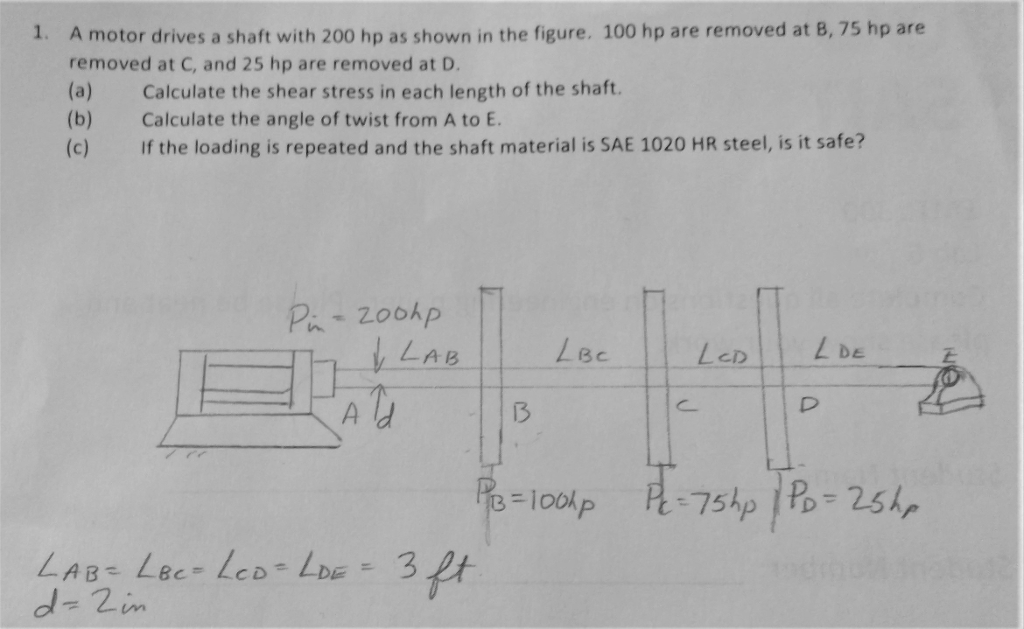 1. A motor drives a shaft with 200 hp as shown in the figure. 100 hp are removed at B, 75 hp are
removed at C, and 25 hp are removed at D.
(a) Calculate the shear stress in each length of the shaft.
(b) Calculate the angle of twist from A to E.
(c) If the loading is repeated and the shaft material is SAE 1020 HR steel, is it safe?
Pin = 200hp
LAB LBC LCD LDE E
A d B C D
PB = 100hp Pc = 75hp PD = 25hp
LAB = LBC = LCD = LDE = 3 ft
d = 2in